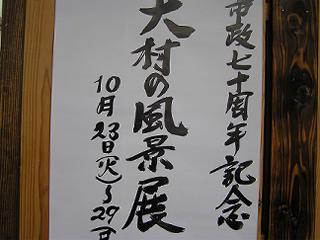 市政七十周年記念
大村の風景展
10月23日(火)~29(日